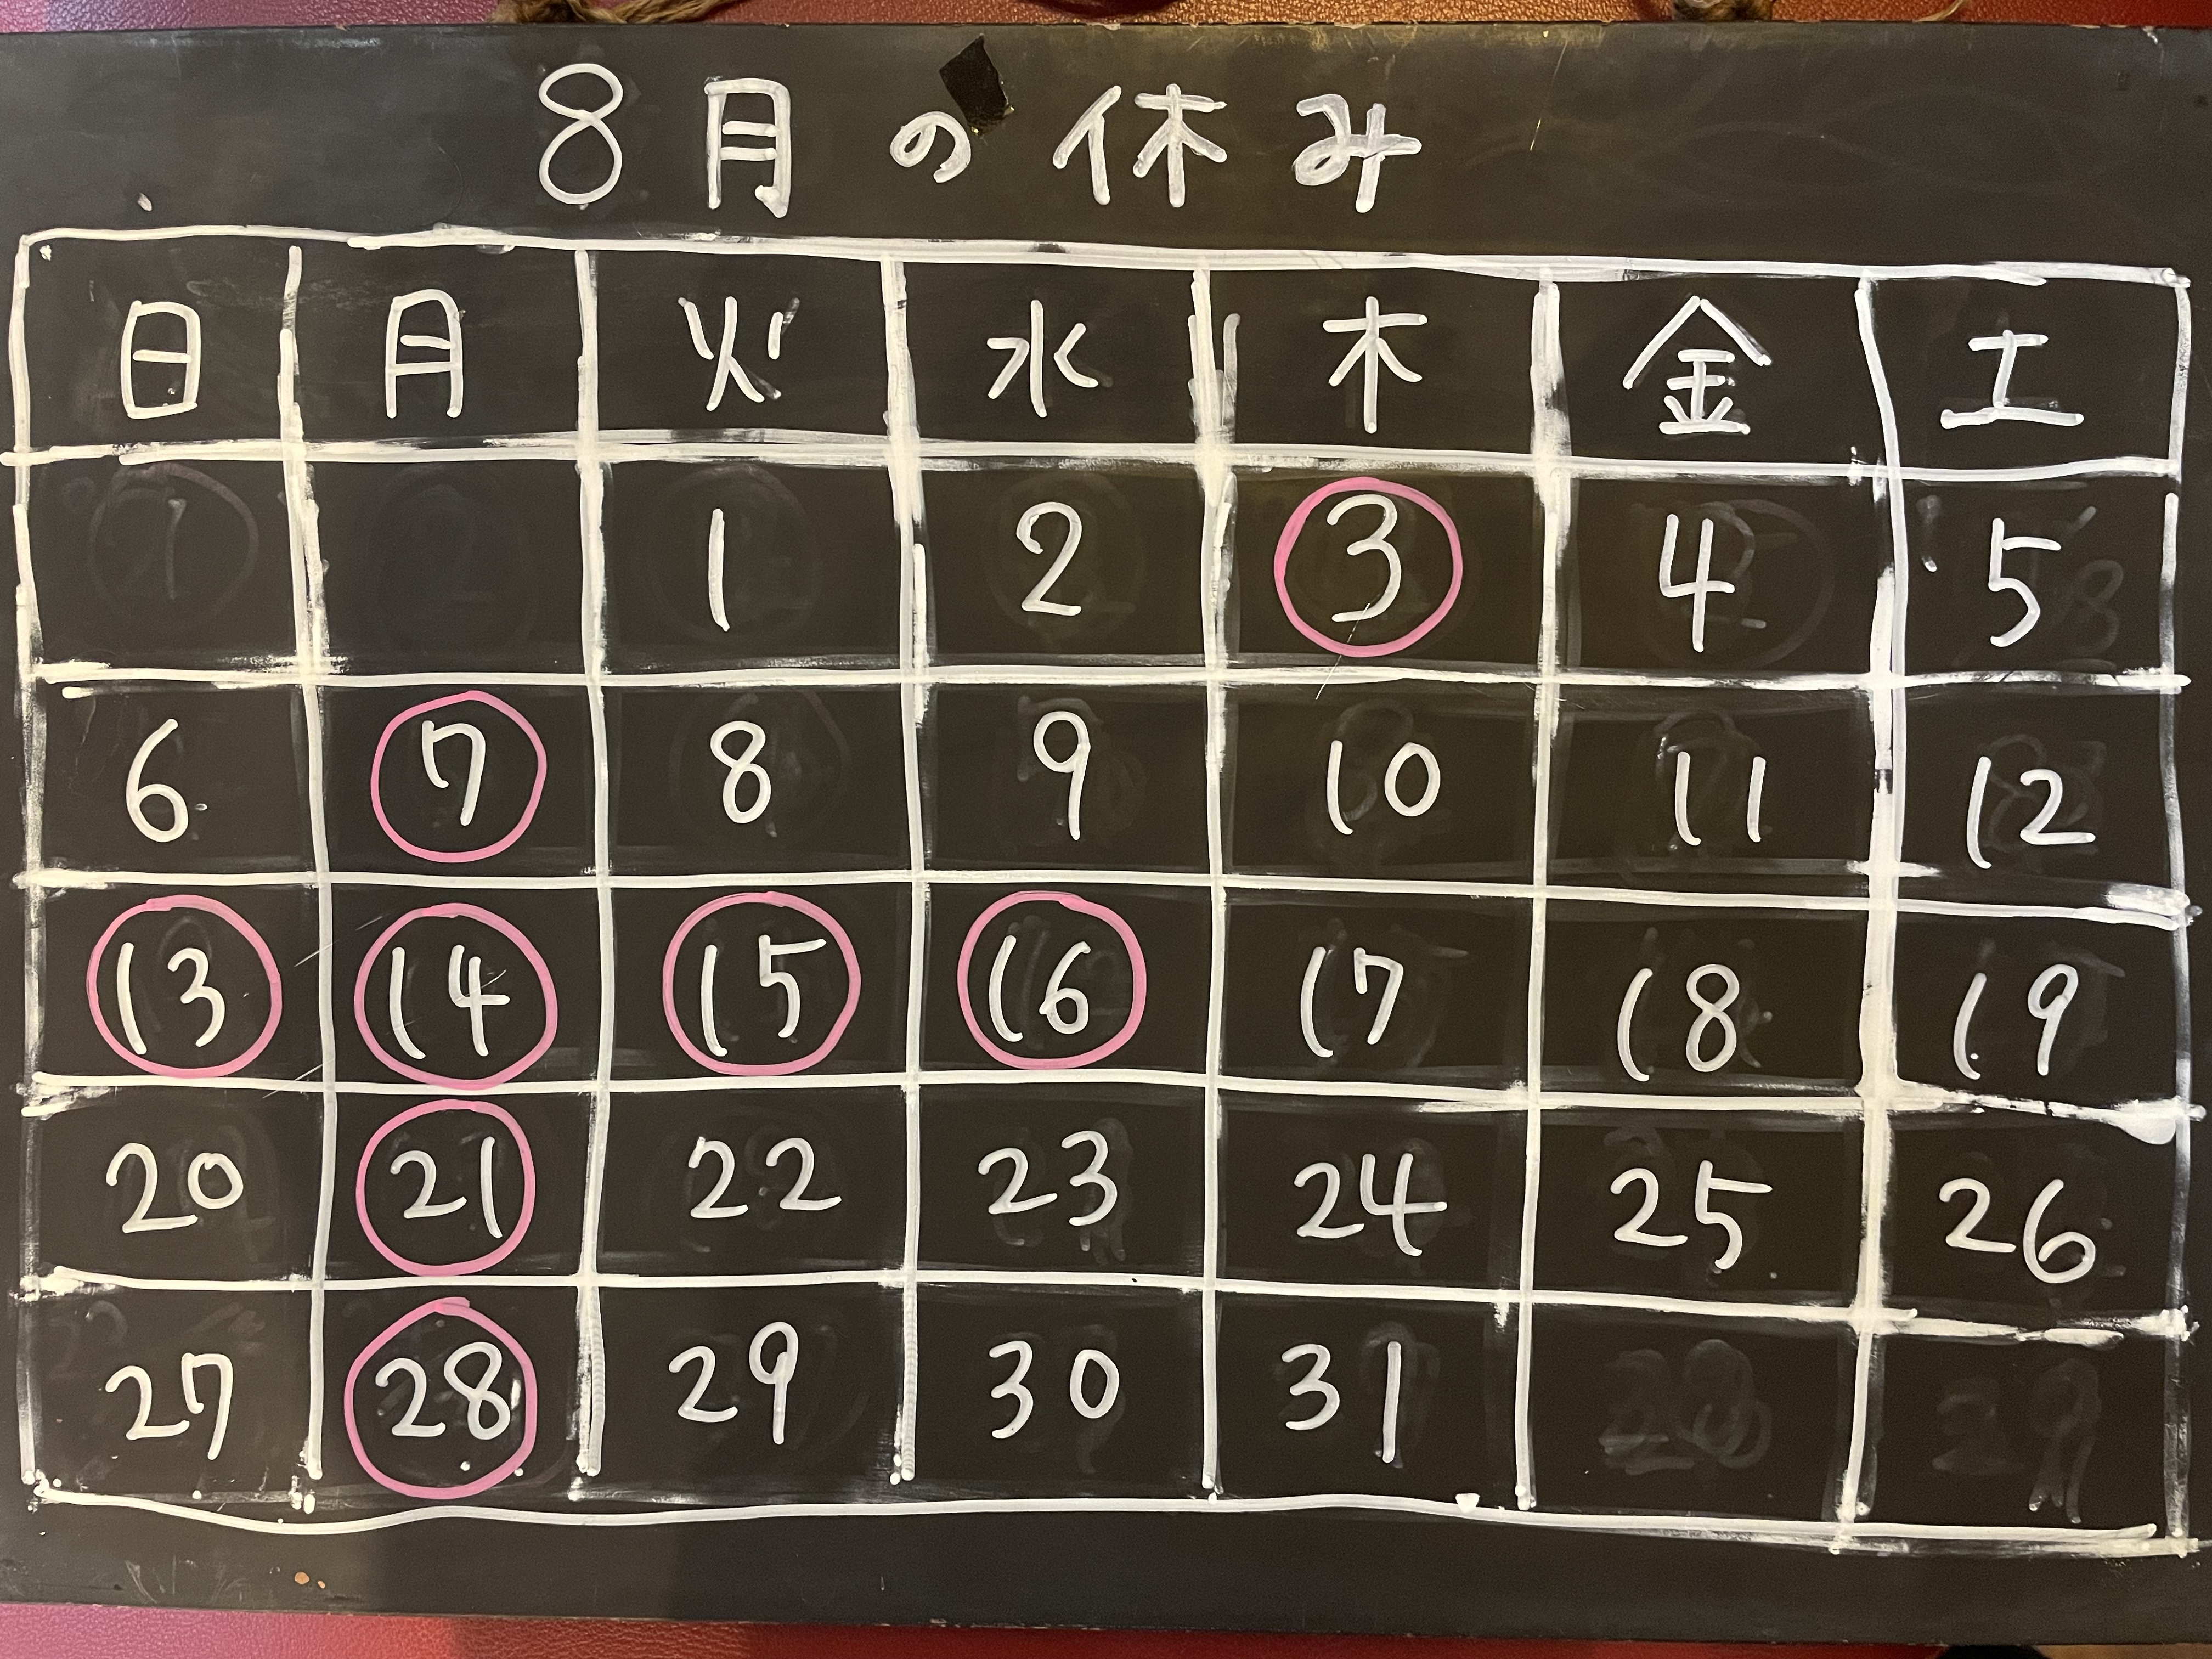 8月の休み
日 月 火 水 木 金 土
1 2 3 4 5
6 7 8 9 10 11 12
13 14 15 16 17 18 19
20 21 22 23 24 25 26
27 28 29 30 31